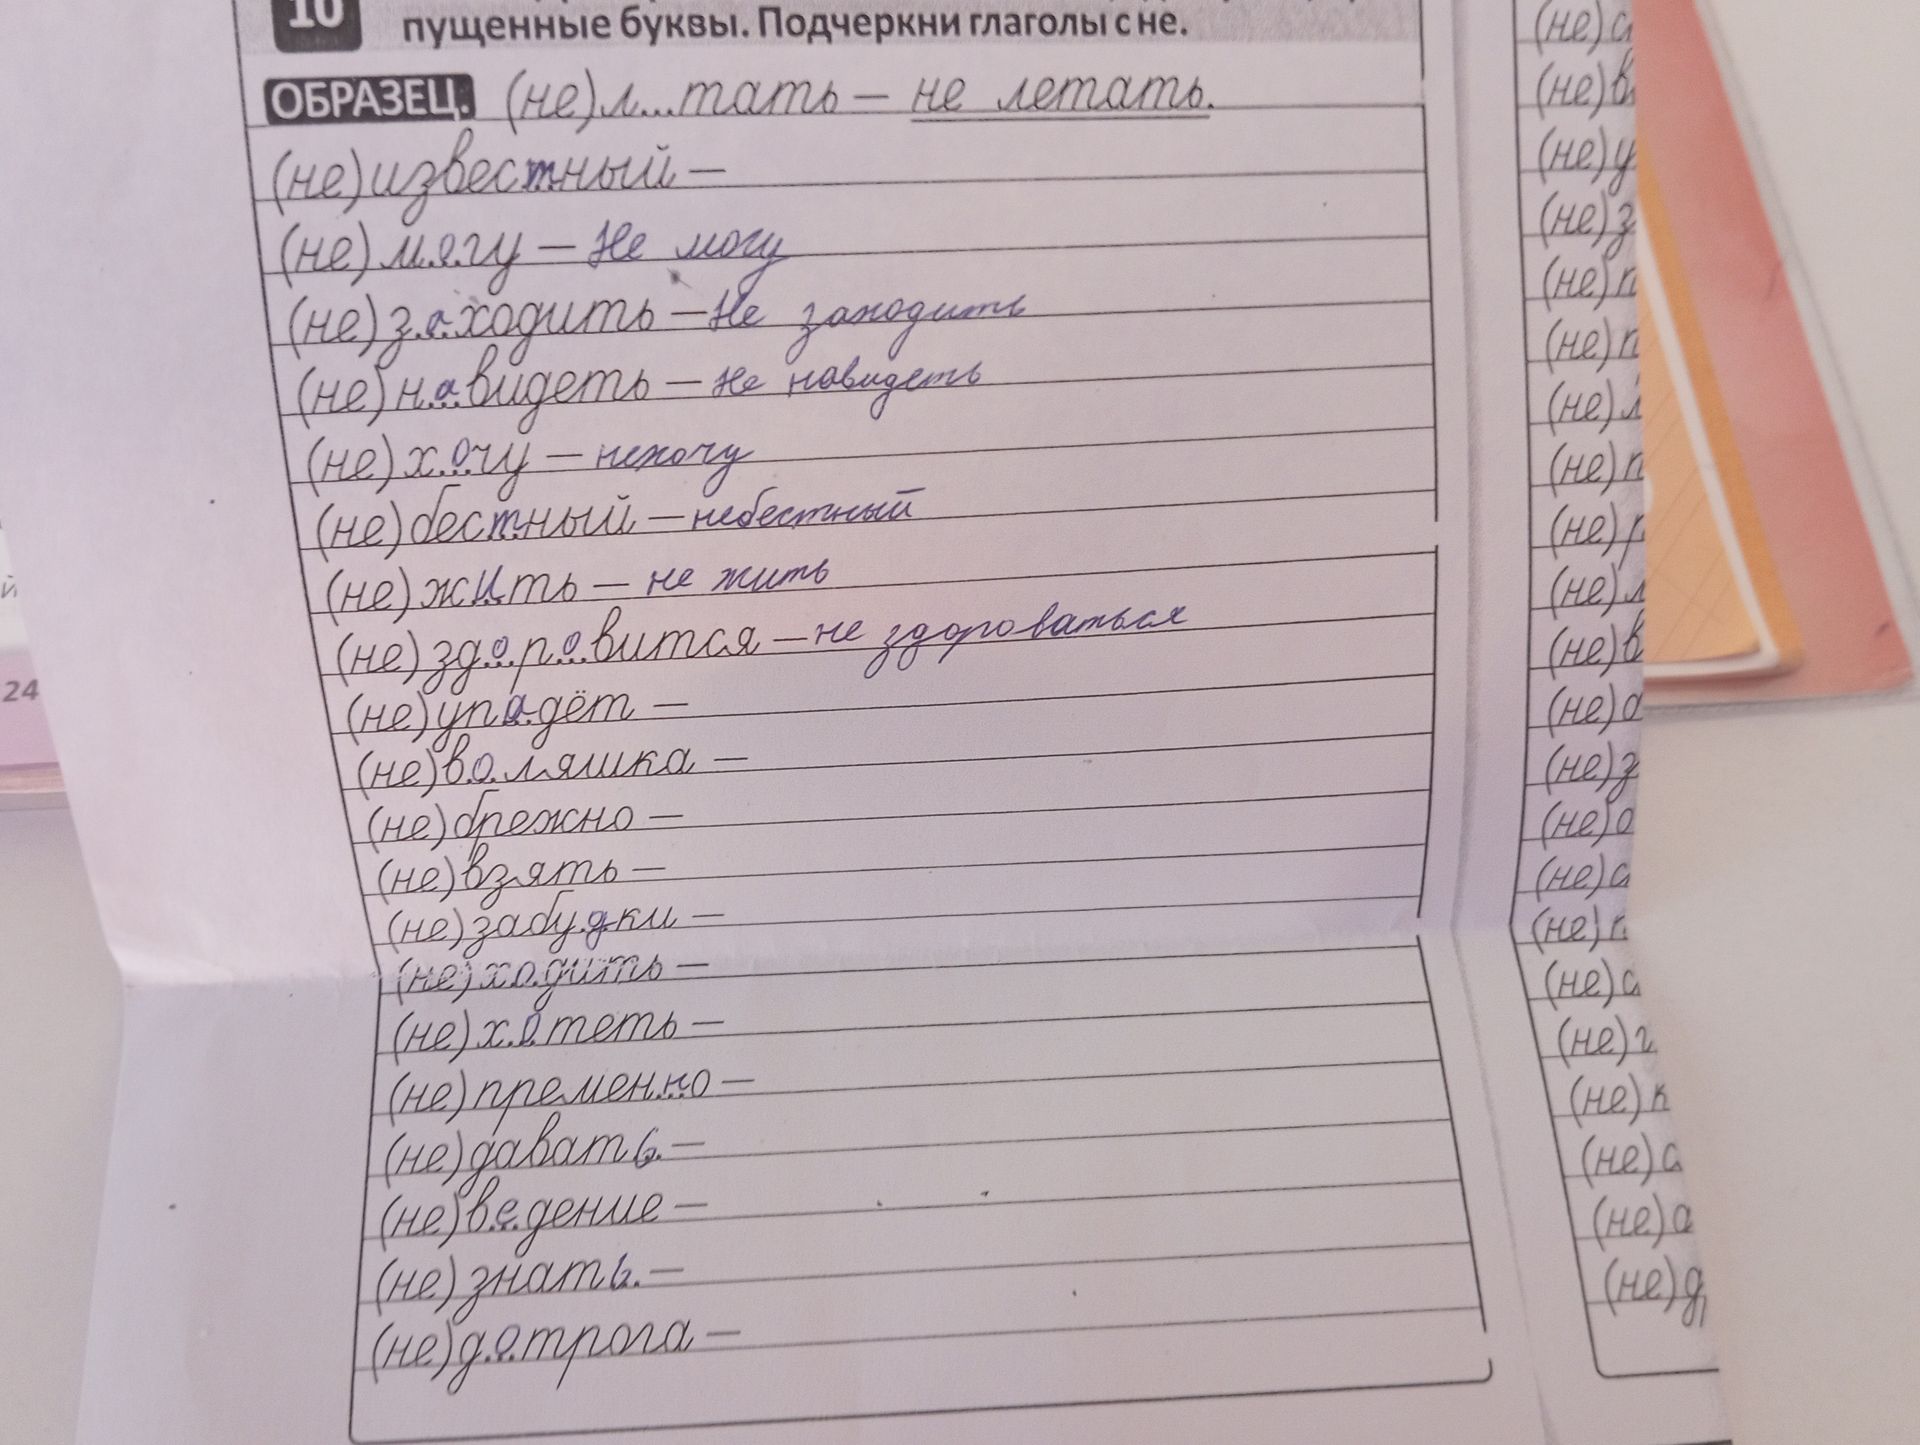 10
пущенные буквы. Подчеркни глаголы с не.
ОБРАЗЕЦ. (не)л...тать — не летать.
(не)известный —
(не)могу — Не могу
(не)заходить — Не заходить
(не)навидеть — Не навидеть
(не)хочу — нехочу
(не)бестный — небестный
(не)жить — не жить
(не)здоровится — не здороваться
(не)упадёт —
(не)воляшка —
(не)брежно —
(не)взять —
(не)забудки —
(не)ходить —
(не)хотеть —
(не)пременно —
(не)давать —
(не)ведение —
(не)знать —
(не)дотрога —
(не)с
(не)в
(не)у
(не)з
(не)п
(не)п
(не)л
(не)п
(не)р
(не)л
(не)в
(не)о
(не)з
(не)о
(не)с
(не)п
(не)с
(не)г
(не)к
(не)с
(не)о
(не)д
й
24